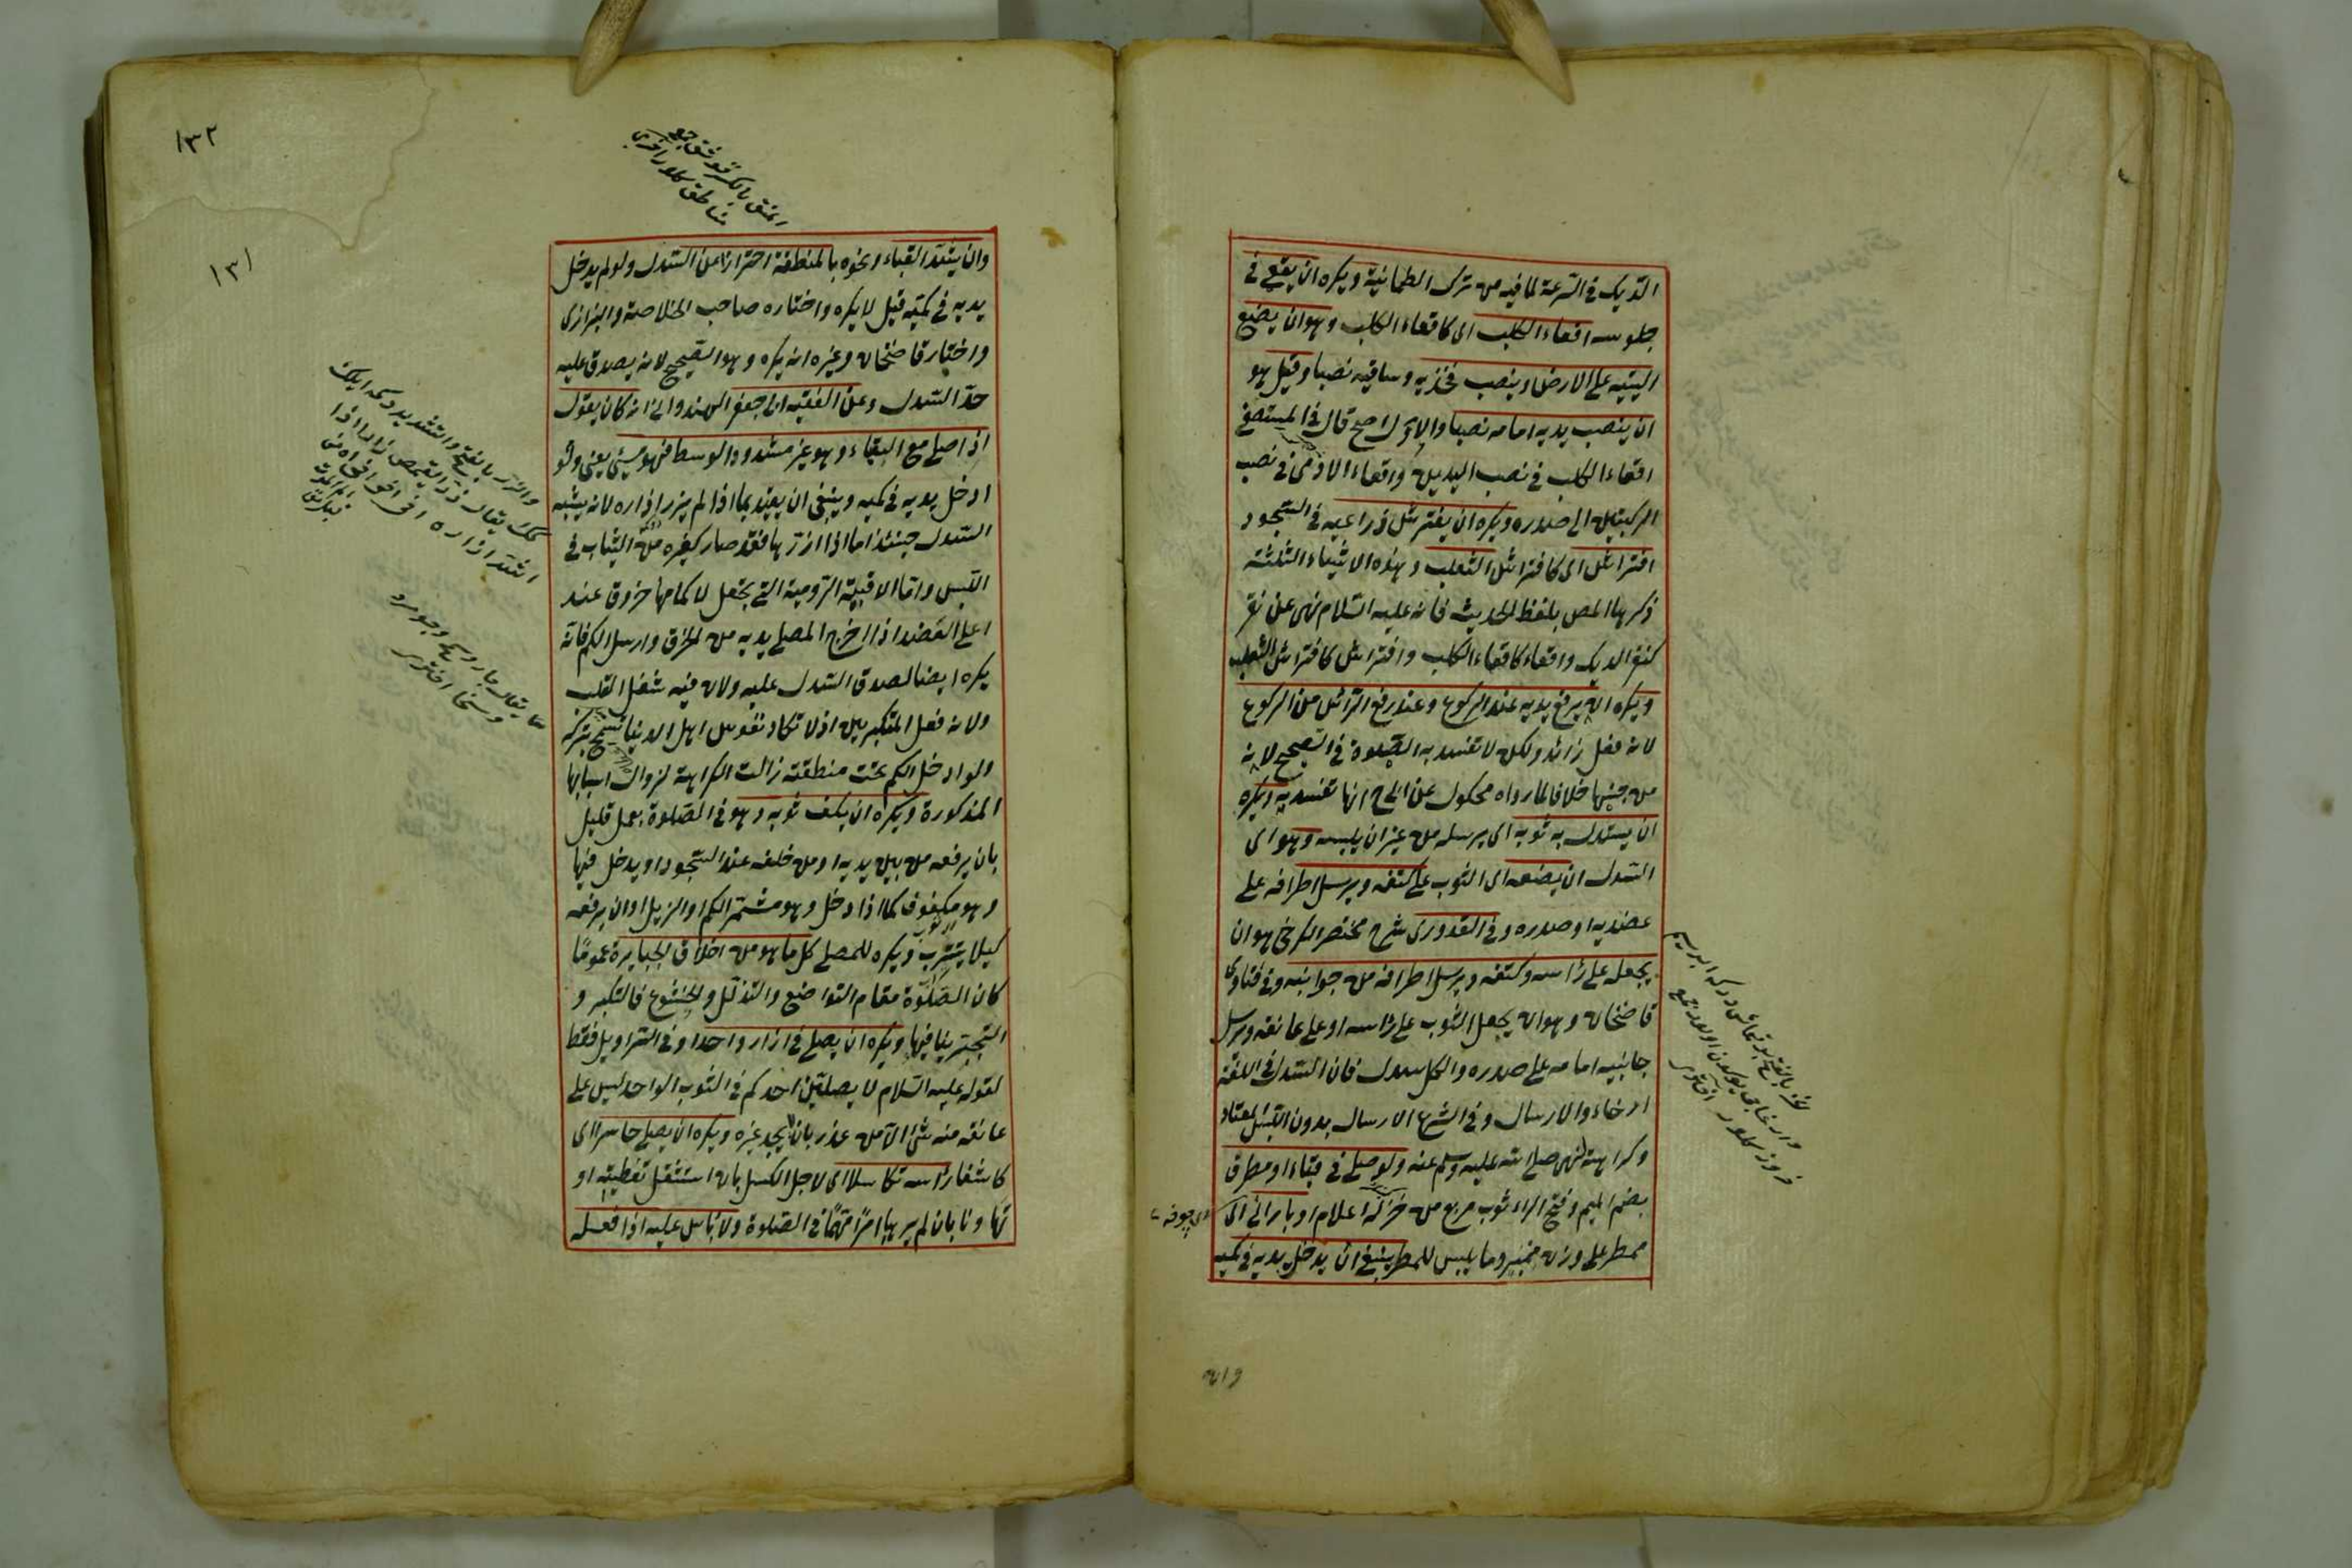 الديك في السرعة لما فيه من ترك الطمانينة ويكره ان يقعي في
جلوسه اقعاء الكلب اى كاقعاء الكلب وهو ان يضع
اليتيه على الارض وينصب فخذيه وساقيه نصبا وقيل هو
ان ينصب يديه امامه نصبا والاول اصح قال في المستصفى
اقعاء الكلب في نصب اليدين واقعاء الادمى في نصب
الركبتين الى صدره ويكره ان يفترش ذراعيه في السجود
افتراش اى كافتراش الثعلب وهذه الاشياء الثلثة
ذكرها المص بلفظ الحديث فانه عليه السلام نهى عن نقر
كنقر الديك واقعاء كاقعاء الكلب وافتراش كافتراش الثعلب
ويكره ان يرفع يديه عند الركوع وعند رفع الراس من الركوع
لانه فعل زائد ولكن لا تفسد به الصلوة في الصحيح لانه
من جنسها خلافا لما رواه مكحول عن ابى ح انها تفسد به ويكره
ان يسدل به ثوبه اى يرسله من غير ان يلبسه وهو اى
السدل ان يضعه اى الثوب على كتفه ويرسل اطرافه على
عضديه او صدره وفي القدورى شرح مختصر الكرخى هو ان
يجعله على راسه وكتفه ويرسل اطرافه من جوانبه وفي فتاوى
قاضخان وهو ان يجعل الثوب على راسه او على عاتقه ويرسل
جانبيه امامه على صدره والكل سدل فان السدل في اللغة
الارخاء والارسال وفي الشرع الارسال بدون اللبس المعتاد
وكراهته لنهى صلى الله عليه وسلم عنه ولو صلى في قباء او مطرق
بضم الميم وفتح الراء ثوب مربع من خز له اعلام او بارانى اى
ممطر على وزن منبر وما يلبس للمطر ينبغى ان يدخل يديه في كميه
وان
وان يشد القباء ونحوه بالمنطقة احترازا عن السدل ولو لم يدخل
يديه في كميه قيل لا يكره واختاره صاحب الخلاصة والبزازى
واختار قاضخان وغيره انه يكره وهو الصحيح لانه يصدق عليه
حد السدل وعن الفقيه ابى جعفر الهندوانى انه كان يقول
اذا صلى مع القباء وهو غير مشدود الوسط فهو مسيئ يعنى ولو
ادخل يديه في كميه وينبغى ان يقيد بما اذا لم يزر ازاره لانه يشبه
السدل حينئذ اما اذا ازرها فقد صار كغيره من الثياب في
اللبس واما الاقبية الرومية التى يجعل لاكمامها خروق عند
اعلى العضد اذا اخرج المصلى يديه من الخرق وارسل الكم فانه
يكره ايضا لصدق السدل عليه ولان فيه شغل القلب
ولانه فعل المتكبرين اذ لا تكاد نفوس اهل الدنيا تسمح بتركه
ولو ادخل الكم تحت منطقته زالت الكراهة لزوال اسبابها
المذكورة ويكره ان يكف ثوبه وهو في الصلوة بعمل قليل
بان يرفعه من بين يديه او من خلفه عند السجود او يدخل فيها
وهو مكفوف كما اذا دخل وهو مشتمر الكم او الزيل او ان يرفعه
كيلا يتترب ويكره للمصلى كل ما هو من اخلاق الجبابرة عموما
كان الصلوة مقام التواضع والتذلل والخشوع فالتكبر و
التجبر ينافيها ويكره ان يصلى في ازار واحد او في السراويل فقط
لقوله عليه السلام لا يصلين احدكم في الثوب الواحد ليس على
عاتقه منه شئ الا من عذر بان لا يجد غيره ويكره ان يصلى حاسرا اى
كاشفا راسه تكاسلا اى لاجل الكسل بان استثقل تغطيته او
تهاونا بان لم يرها امرا مهما في الصلوة ولا باس عليه اذا فعله
١٣٢
١٣١